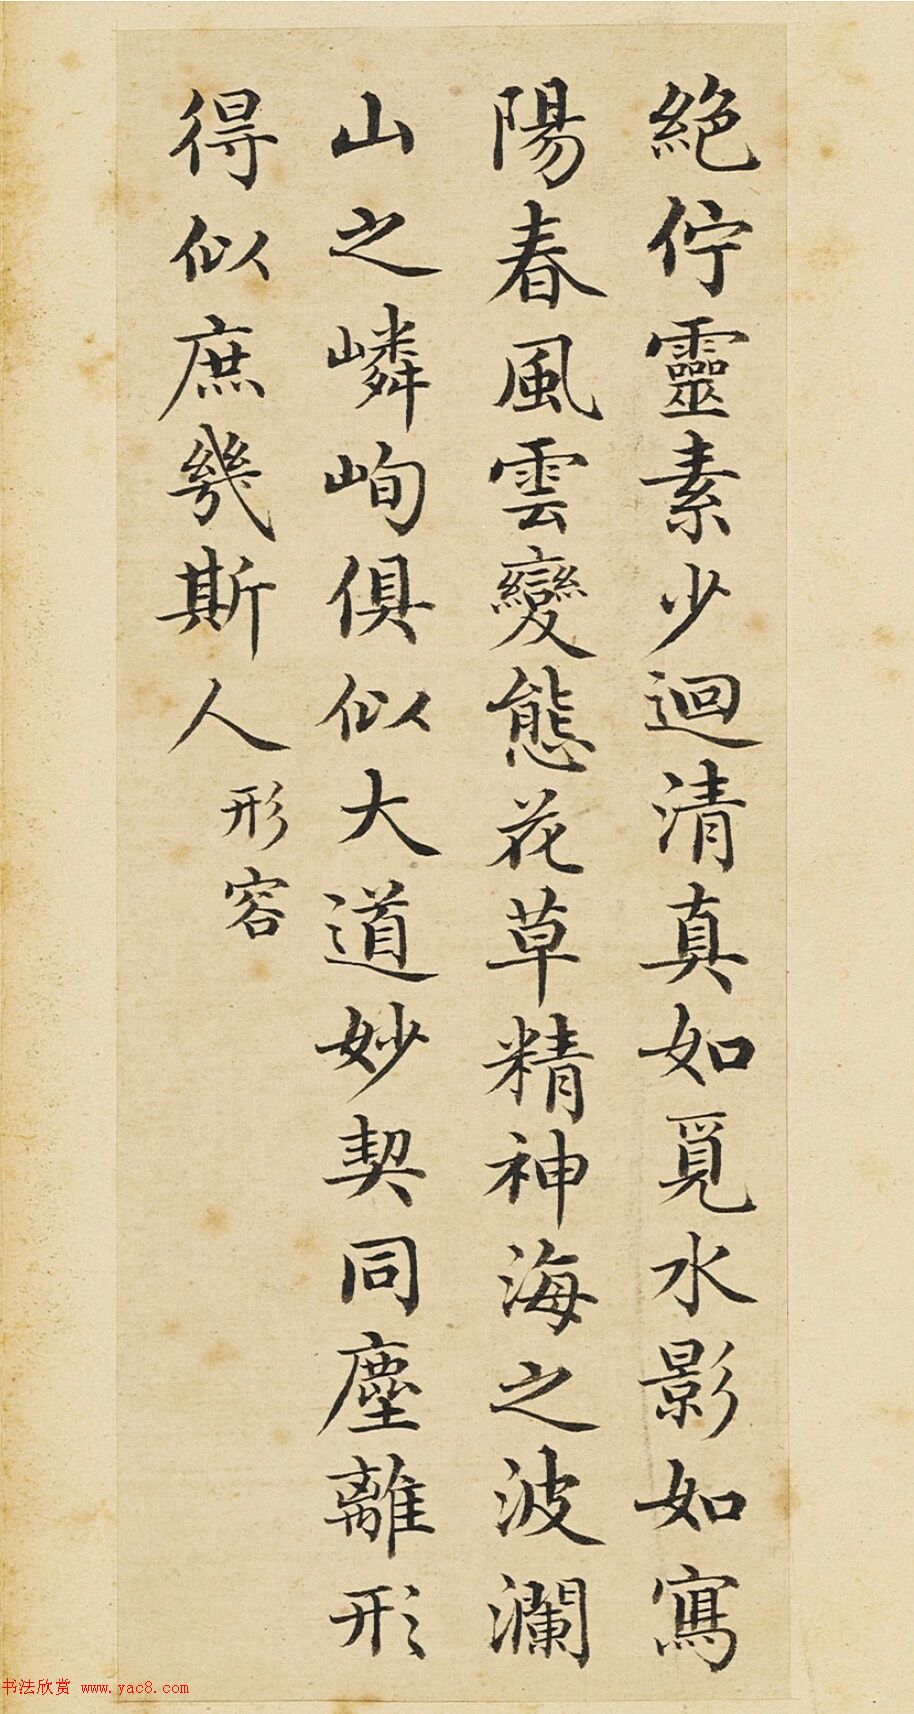 絶佇靈素少迴清真如覓水影如寫
陽春風雲變態花草精神海之波瀾
山之嶙峋俱似大道妙契同塵離形
得似庶幾斯人
形容
书法欣赏 www.yac8.com